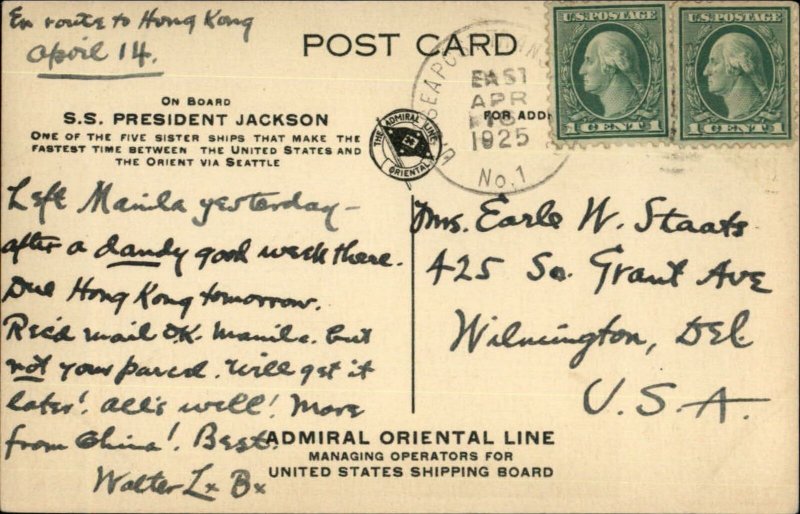 En route to Hong Kong
April 14.
POST CARD
U.S. POSTAGE
1 CENT 1
U.S. POSTAGE
1 CENT 1
EAST
APR
1925
No. 1
FOR ADD
ON BOARD
S.S. PRESIDENT JACKSON
ONE OF THE FIVE SISTER SHIPS THAT MAKE THE
FASTEST TIME BETWEEN THE UNITED STATES AND
THE ORIENT VIA SEATTLE
THE ADMIRAL LINE
ORIENTAL
Left Manila yesterday -
after a dandy good week there.
Due Hong Kong tomorrow.
Rec'd mail O.K. Manila. but
not your parcel. Will get it
later! All's well! More
from China! Best.
Walter L x B x
Mrs. Earle W. Staats
425 So. Grant Ave
Wilmington, Del
U.S.A.
ADMIRAL ORIENTAL LINE
MANAGING OPERATORS FOR
UNITED STATES SHIPPING BOARD